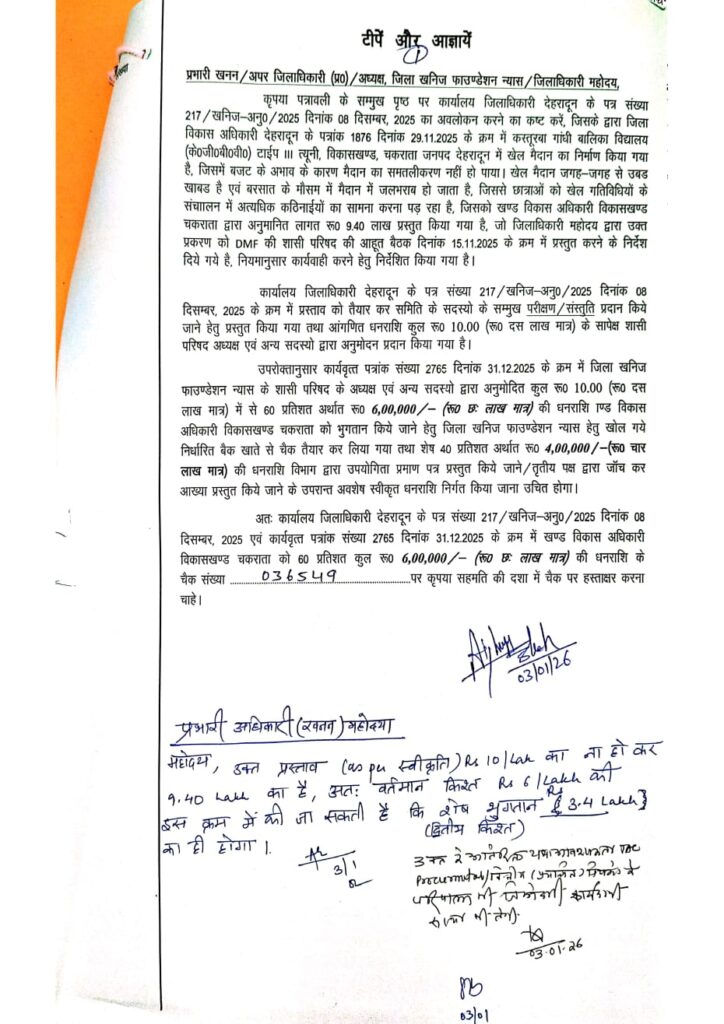 टीपें और आज्ञायें
प्रभारी खनन/अपर जिलाधिकारी (प्र0)/अध्यक्ष, जिला खनिज फाउण्डेशन न्यास/जिलाधिकारी महोदय,
कृपया पत्रावली के सम्मुख पृष्ठ पर कार्यालय जिलाधिकारी देहरादून के पत्र संख्या
217/खनिज-अनु0/2025 दिनांक 08 दिसम्बर, 2025 का अवलोकन करने का कष्ट करें, जिसके द्वारा जिला
विकास अधिकारी देहरादून के पत्रांक 1876 दिनांक 29.11.2025 के क्रम में कस्तूरबा गांधी बालिका विद्यालय
(के0जी0बी0वी0) टाईप III त्यूनी, विकासखण्ड, चकराता जनपद देहरादून में खेल मैदान का निर्माण किया गया
है, जिसमें बजट के अभाव के कारण मैदान का समतलीकरण नहीं हो पाया। खेल मैदान जगह-जगह से उबड
खाबड है एवं बरसात के मौसम में मैदान में जलभराब हो जाता है, जिससे छात्राओं को खेल गतिविधियों के
संचाालन में अत्यधिक कठिनाईयों का सामना करना पड़ रहा है, जिसको खण्ड विकास अधिकारी विकासखण्ड
चकराता द्वारा अनुमानित लागत रू0 9.40 लाख प्रस्तुत किया गया है, जो जिलाधिकारी महोदय द्वारा उक्त
प्रकरण को DMF की शासी परिषद की आहूत बैठक दिनांक 15.11.2025 के क्रम में प्रस्तुत करने के निर्देश
दिये गये है, नियमानुसार कार्यवाही करने हेतु निर्देशित किया गया है।
कार्यालय जिलाधिकारी देहरादून के पत्र संख्या 217/खनिज-अनु0/2025 दिनांक 08
दिसम्बर, 2025 के क्रम में प्रस्ताव को तैयार कर समिति के सदस्यो के सम्मुख परीक्षण/संस्तुति प्रदान किये
जाने हेतु प्रस्तुत किया गया तथा आंगणित धनराशि कुल रू0 10.00 (रू0 दस लाख मात्र) के सापेक्ष शासी
परिषद अध्यक्ष एवं अन्य सदस्यो द्वारा अनुमोदन प्रदान किया गया है।
उपरोक्तानुसार कार्यवृत्त पत्रांक संख्या 2765 दिनांक 31.12.2025 के क्रम में जिला खनिज
फाउण्डेशन न्यास के शासी परिषद के अध्यक्ष एवं अन्य सदस्यो द्वारा अनुमोदित कुल रू0 10.00 (रू0 दस
लाख मात्र) में से 60 प्रतिशत अर्थात रू0 6,00,000/- (रू0 छः लाख मात्र) की धनराशि ाण्ड विकास
अधिकारी विकासखण्ड चकराता को भुगतान किये जाने हेतु जिला खनिज फाउण्डेशन न्यास हेतु खोल गये
निर्धारित बैक खाते से चैक तैयार कर लिया गया तथा शेष 40 प्रतिशत अर्थात रू0 4,00,000/-(रू0 चार
लाख मात्र) की धनराशि विभाग द्वारा उपयोगिता प्रमाण पत्र प्रस्तुत किये जाने/तृतीय पक्ष द्वारा जॉंच कर
आख्या प्रस्तुत किये जाने के उपरान्त अवशेष स्वीकृत धनराशि निर्गत किया जाना उचित होगा।
अतः कार्यालय जिलाधिकारी देहरादून के पत्र संख्या 217/खनिज-अनु0/2025 दिनांक 08
दिसम्बर, 2025 एवं कार्यवृत्त पत्रांक संख्या 2765 दिनांक 31.12.2025 के क्रम में खण्ड विकास अधिकारी
विकासखण्ड चकराता को 60 प्रतिशत कुल रू0 6,00,000/- (रू0 छः लाख मात्र) की धनराशि के
चैक संख्या 036549 पर कृपया सहमति की दशा में चैक पर हस्ताक्षर करना
चाहे।
03/01/26
प्रभारी अधिकारी (खनन) महोदया
महोदया, उक्त प्रस्ताव (as per स्वीकृति) Rs 10/Lak का ना हो कर
9.40 Lakh का है, अतः वर्तमान किश्त Rs 6/Lakh की
इस क्रम में की जा सकती है कि शेष भुगतान Rs {3.4 Lakh}
(द्वितीय किश्त)
का ही होगा।
3/1
उक्त के अतिरिक्त
Procurement/वित्तीय
परिपालन की जिम्मेदारी कार्यदायी
संस्था की होगी
03.01.26
03/01